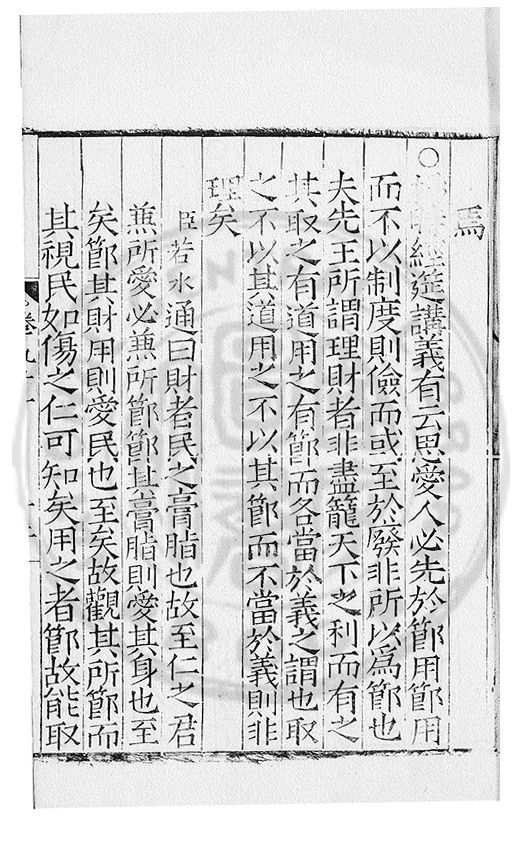 焉
○ 時經筵講義有云思愛人必先於節用節用
而不以制度則儉而或至於廢非所以為節也
夫先王所謂理財者非盡籠天下之利而有之
其取之有道用之有節而各當於義之謂也取
之不以其道用之不以其節而不當於義則非
理矣
臣若水通曰財者民之膏脂也故至仁之君
兼所愛必兼所節節其膏脂則愛其身也至
矣節其財用則愛民也至矣故觀其所節而
其視民如傷之仁可知矣用之者節故能取
卷九十